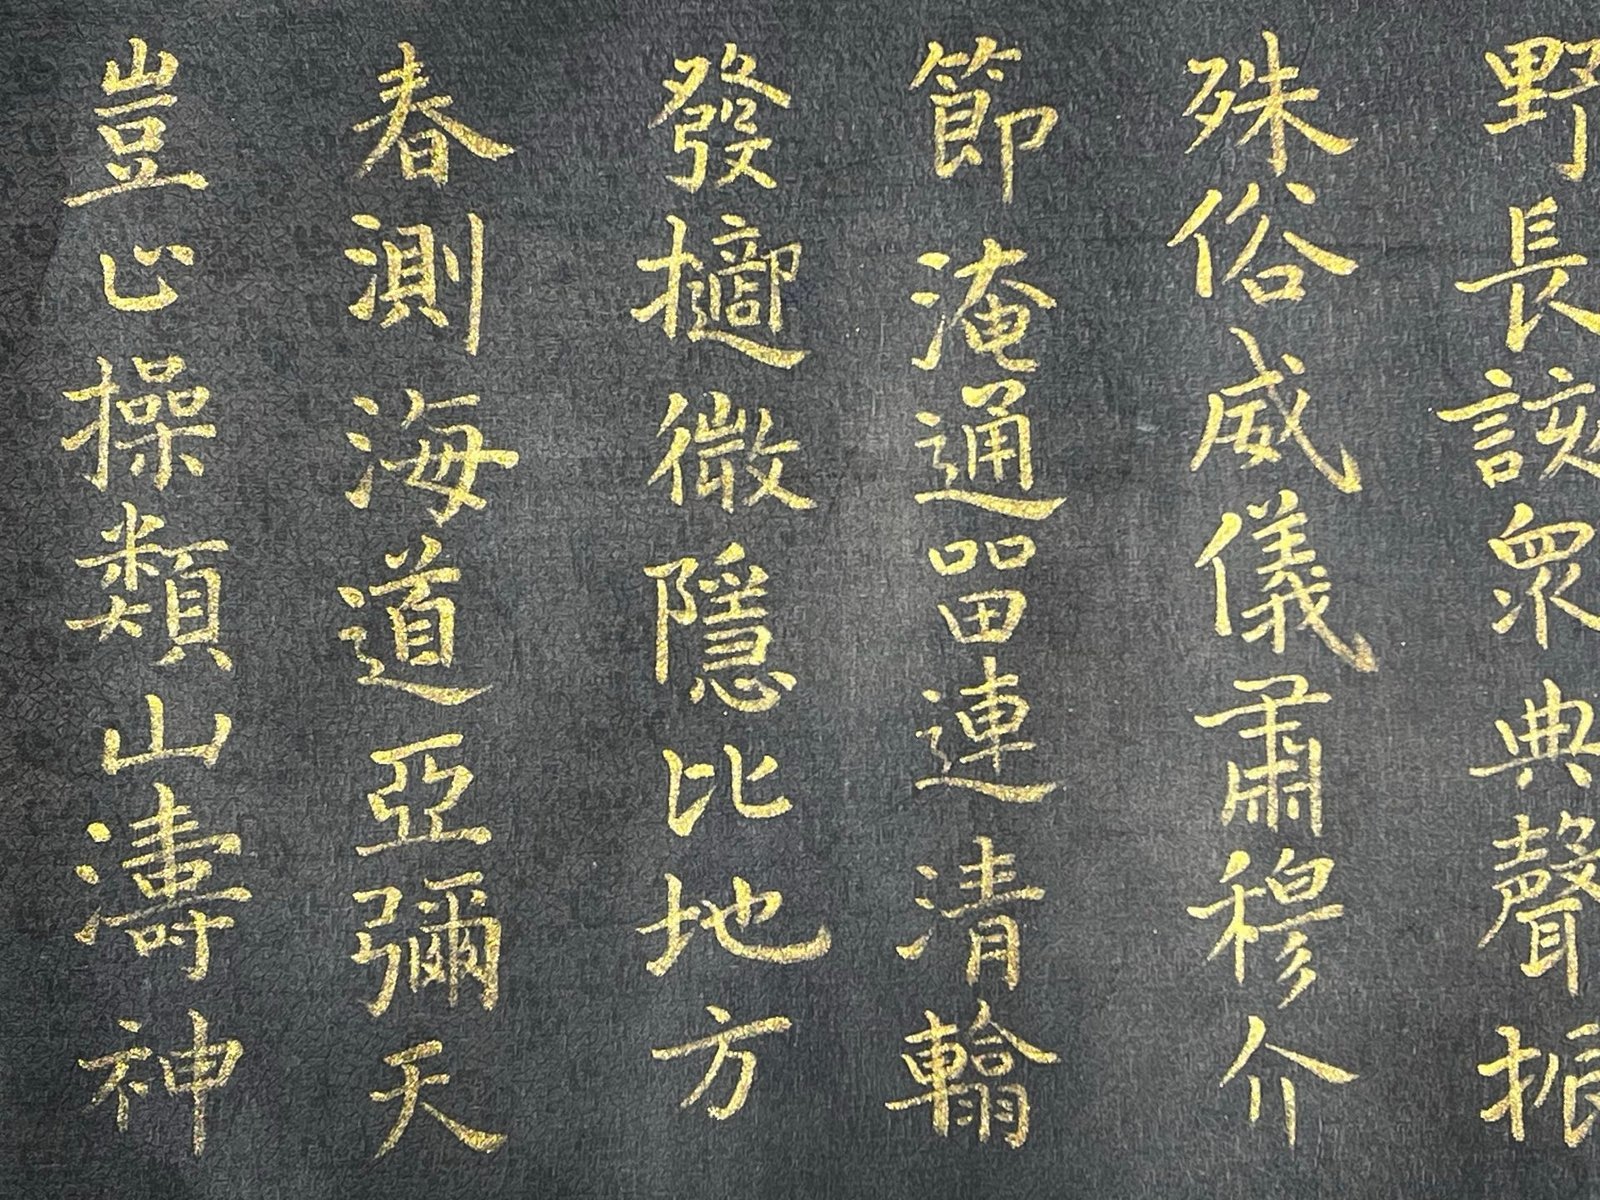 野長該衆典聲振
殊俗威儀肅穆介
節淹通留連清翰
發擿微隱比地方
春測海道亞彌天
豈止操類山濤神